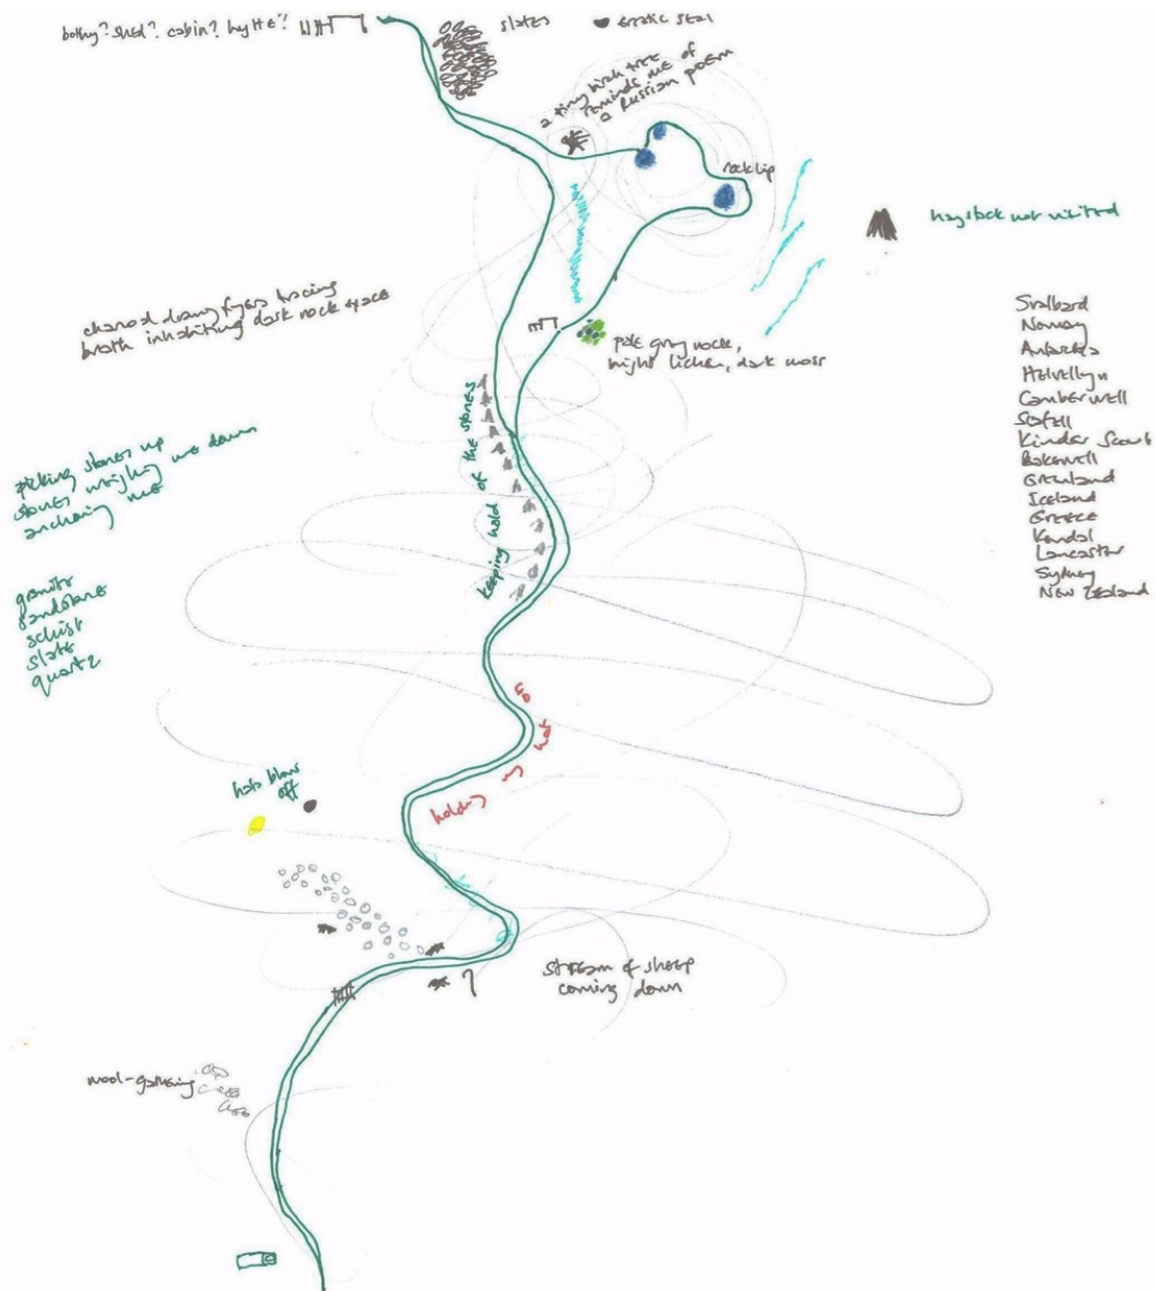 bothy? shed? cabin? hytte?
slates
erratic seal
a tiny birch tree
reminds me of
a Russian poem
rock lip
haystack not visited
charcoal drawing fingers tracing
breath inhabiting dark rock space
pale grey rock,
bright lichen, dark moss
Svalbard
Norway
Antarctica
Helvellyn
Camberwell
Scafell
Kinder Scout
Bakewell
Greenland
Iceland
Greece
Kendal
Lancaster
Sydney
New Zealand
keeping hold of the stones
picking stones up
stones weighing me down
anchoring me
granite
sandstone
schist
slate
quartz
holding my hat
hats blow
off
stream of sheep
coming down
?
wool-gathering